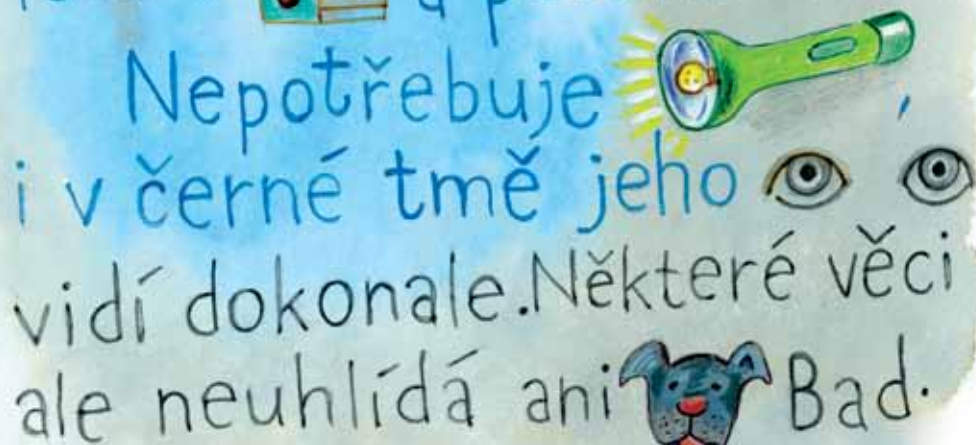 Nepotřebuje
i v černé tmě jeho
vidí dokonale. Některé věci
ale neuhlídá ani Bad.